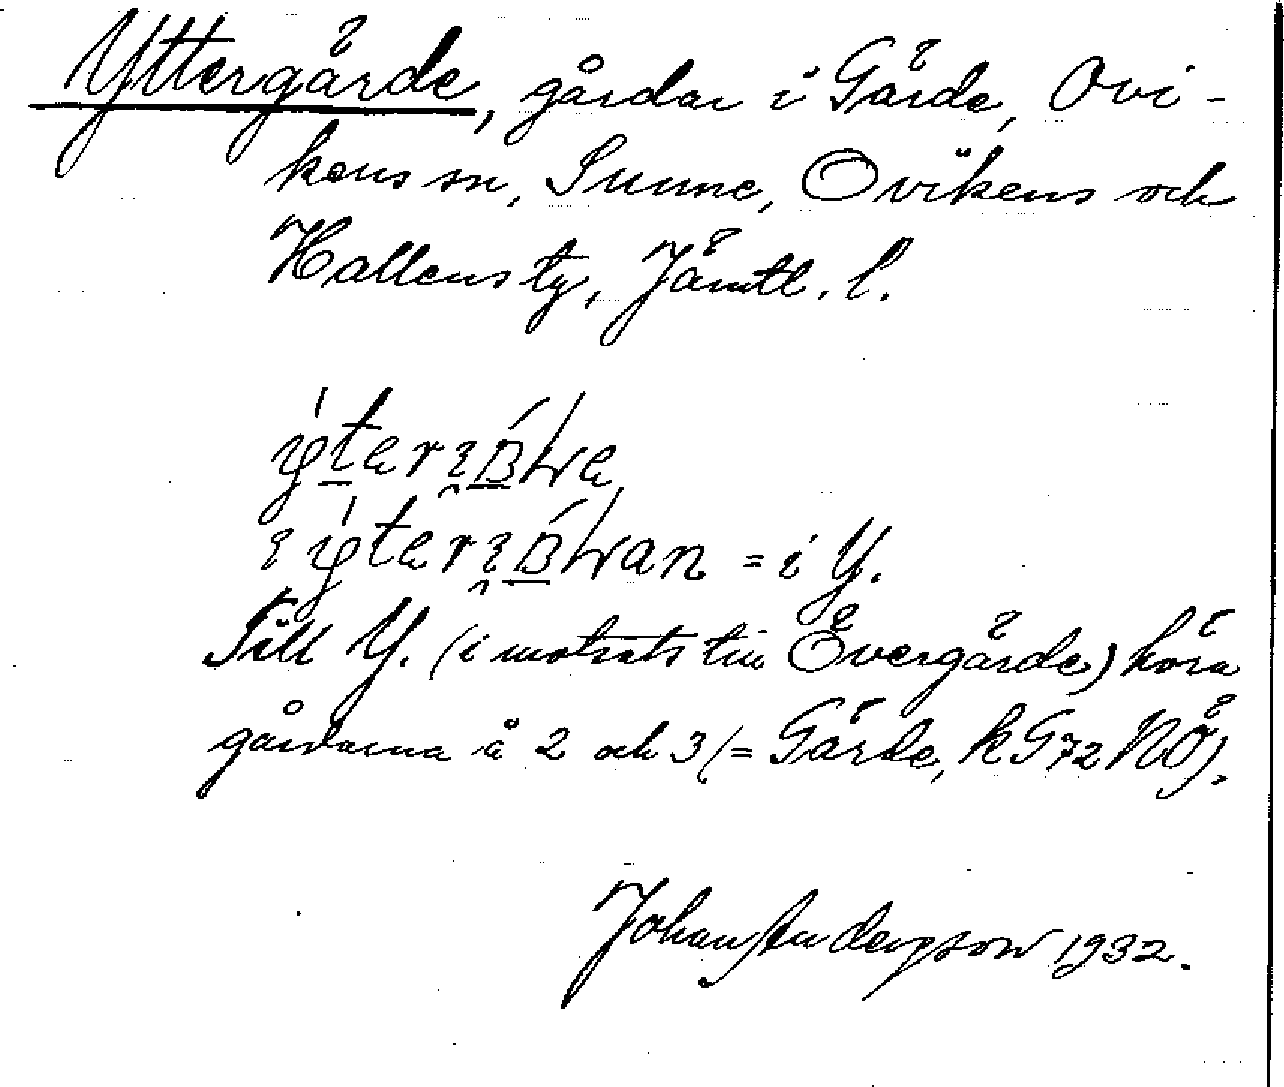 Yttergärde, gårdar i Gärde, Ovi-
kens sn, Sunne, Ovikens och
Hallens tg, Jämtl. l.
= i Y.
Till Y. (i motsats till Övergärde) höra
gårdarna å 2 och 3 (= Gärde, kG72NÖ).
Johan Anderson 1932.